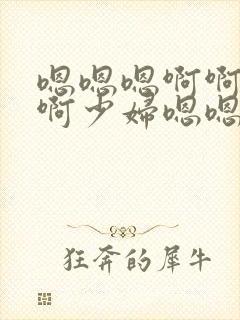 嗯嗯嗯啊啊
啊少妇嗯嗯
狂奔的犀牛